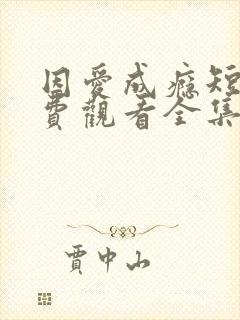 因愛成癮短
費觀看全集
賈中山